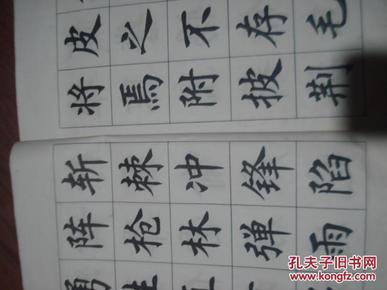 皮之不存毛
将焉附披荆
斩棘冲锋陷
阵枪林弹雨
勇
孔夫子旧书网